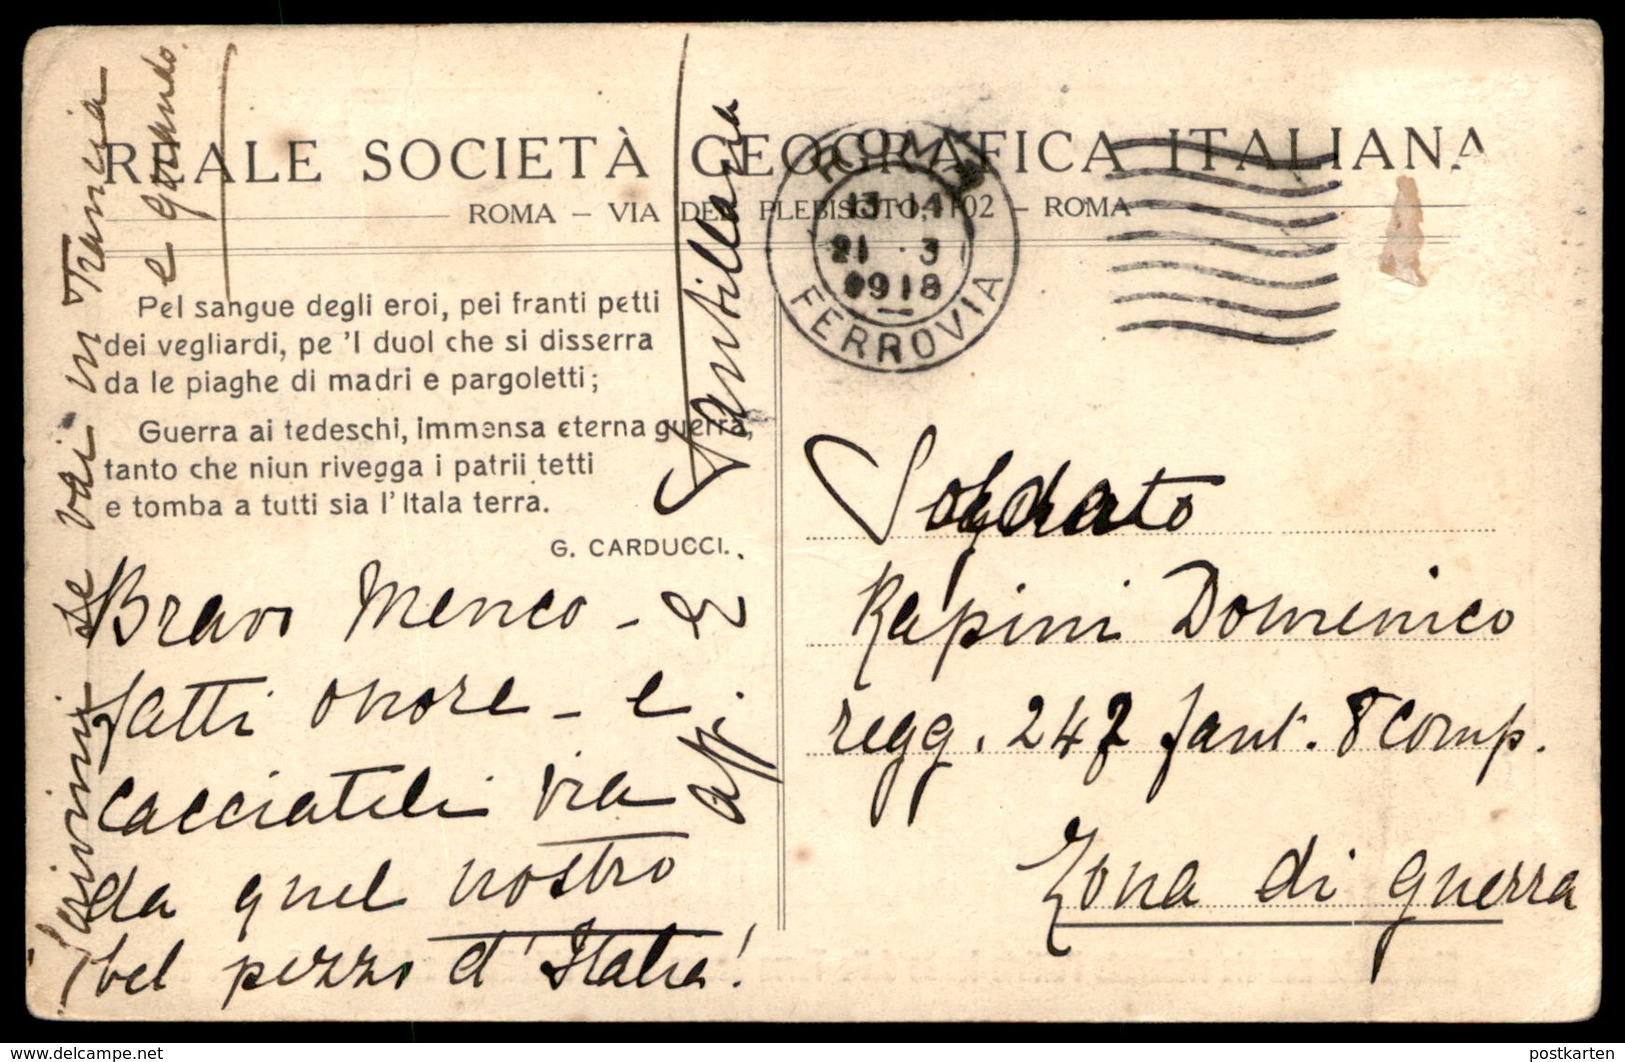 REALE SOCIETÀ GEOGRAFICA ITALIANA
ROMA – VIA DEL PLEBISCITO, 102 – ROMA
ROMA
13·14
21·3
1918
FERROVIA
Pel sangue degli eroi, pei franti petti
dei vegliardi, pe 'l duol che si disserra
da le piaghe di madri e pargoletti;
Guerra ai tedeschi, immensa eterna guerra,
tanto che niun rivegga i patrii tetti
e tomba a tutti sia l' Itala terra.
G. CARDUCCI.
Bravo Menco –
fatti onore – e
cacciateli via
da quel nostro
bel pezzo d'Italia!
Scrivimi se vai in Francia
e quando.
Santillana
Soldato
Rapini Domenico
regg. 247 fant. 8 comp.
Zona di guerra
postkarten